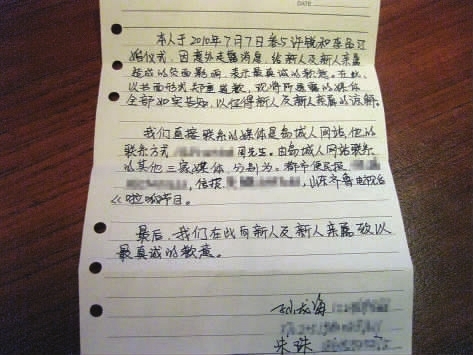 DATE
本人于2010年7月7日参与许锐和李茜订
婚仪式,因意外走露消息,给新人及新人亲属
造成的负面影响,表示最真诚的歉意。在此,
以书面形式郑重道歉,现将所透露的媒体
全部如实告知,以征得新人及新人亲属的谅解。
我们直接联系的媒体是岛城人网站,他的
联系方式 周先生。由岛城人网站联系
的其他三家媒体,分别为:都市便民报,
,信报, ,山东齐鲁电视台
《啦呱》节目。
最后,我们在此向新人及新人亲属致以
最真诚的歉意。
孙成海
朱珠